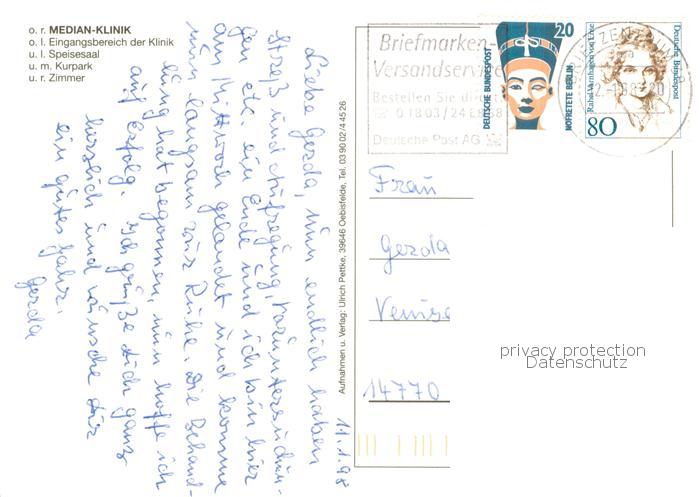 o. r. MEDIAN-KLINIK
o. l. Eingangsbereich der Klinik
u. l. Speisesaal
u. m. Kurpark
u. r. Zimmer
11.1.98
Liebe Gerda, nun endlich haben
Streß und Aufregung, Voruntersuchun-
gen etc. ein Ende und ich bin hier
am Mittwoch gelandet und komme
nun langsam zur Ruhe. Die Behand-
lung hat begonnen, nun hoffe ich
auf Erfolg. Ich grüße dich ganz
herzlich und wünsche dir
ein gutes Jahr.
Gerda
Aufnahmen u. Verlag: Ulrich Pettke, 39646 Oebisfelde, Tel. 03 90 02/4 45 26
Briefmarken-
Versandservice
Bestellen Sie direkt
0 18 03 / 24 68 68
Deutsche Post AG
DEUTSCHE BUNDESPOST
20
NOFRETETE BERLIN
Rahel Varnhagen von Ense
Deutsche Bundespost
80
Frau
Gerda
14770
privacy protection
Datenschutz